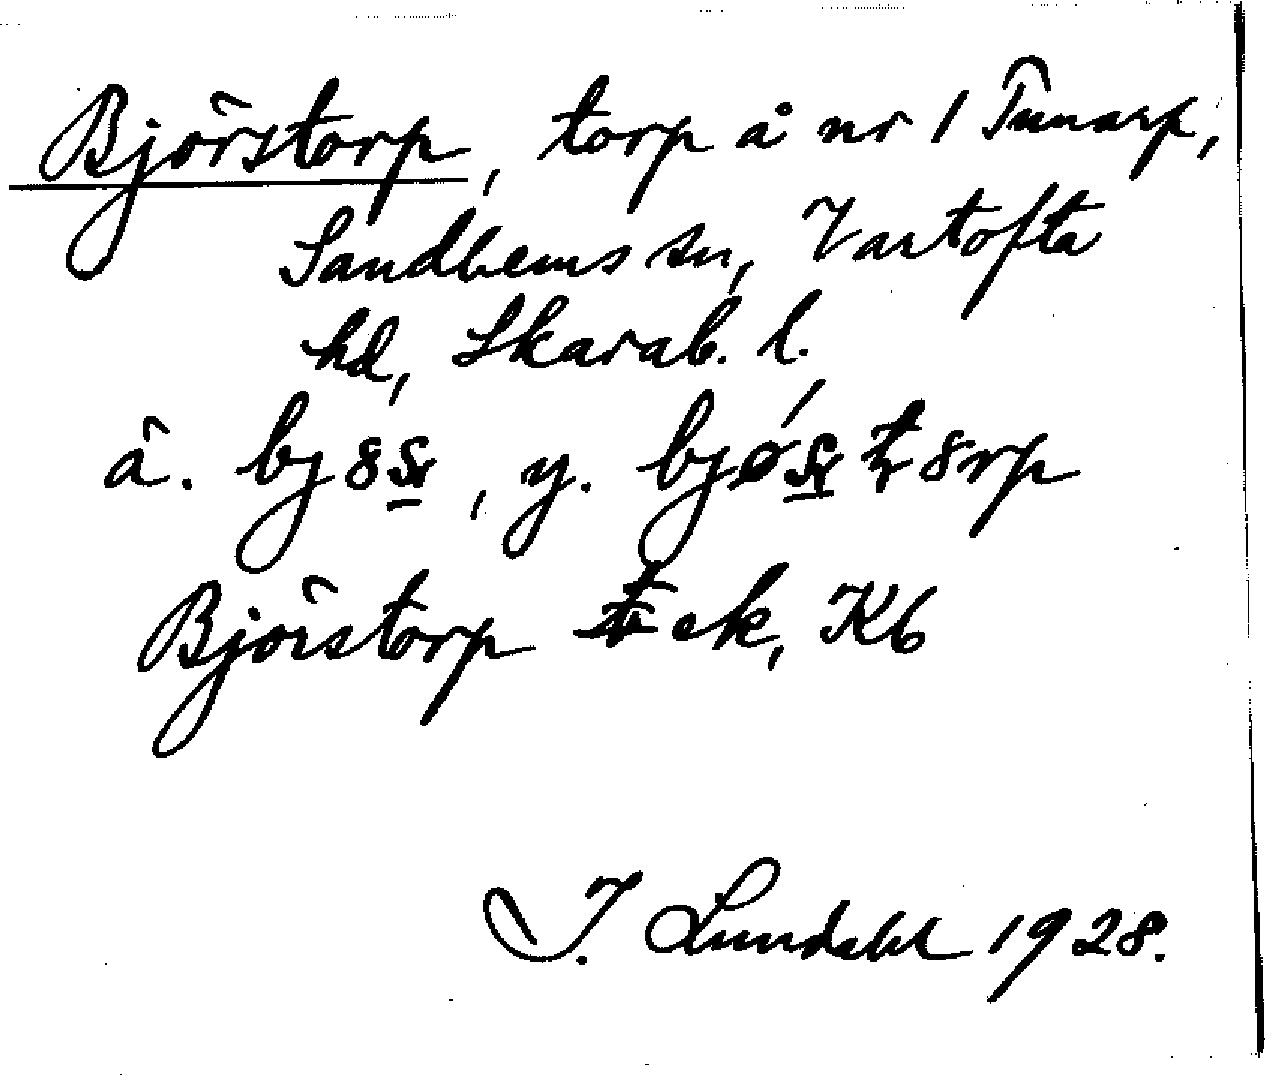 Björstorp, torp å nr 1 Tunarp,
Sandhems sn, Vartofta
hd, Skarab. l.
ä. bj8s̱, y. bjøs̱ t8rp
Björstorp ek, Kb
I. Lundahl 1928.